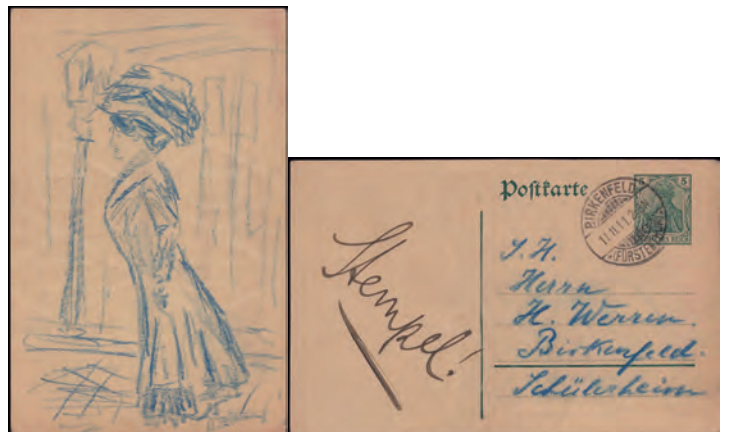 Postkarte
BIRKENFELD
11.11.11.
(FÜRSTENTUM)
5
REICH
Stempel!
S. H.
Herrn
H. Werren.
Birkenfeld.
Schülerheim